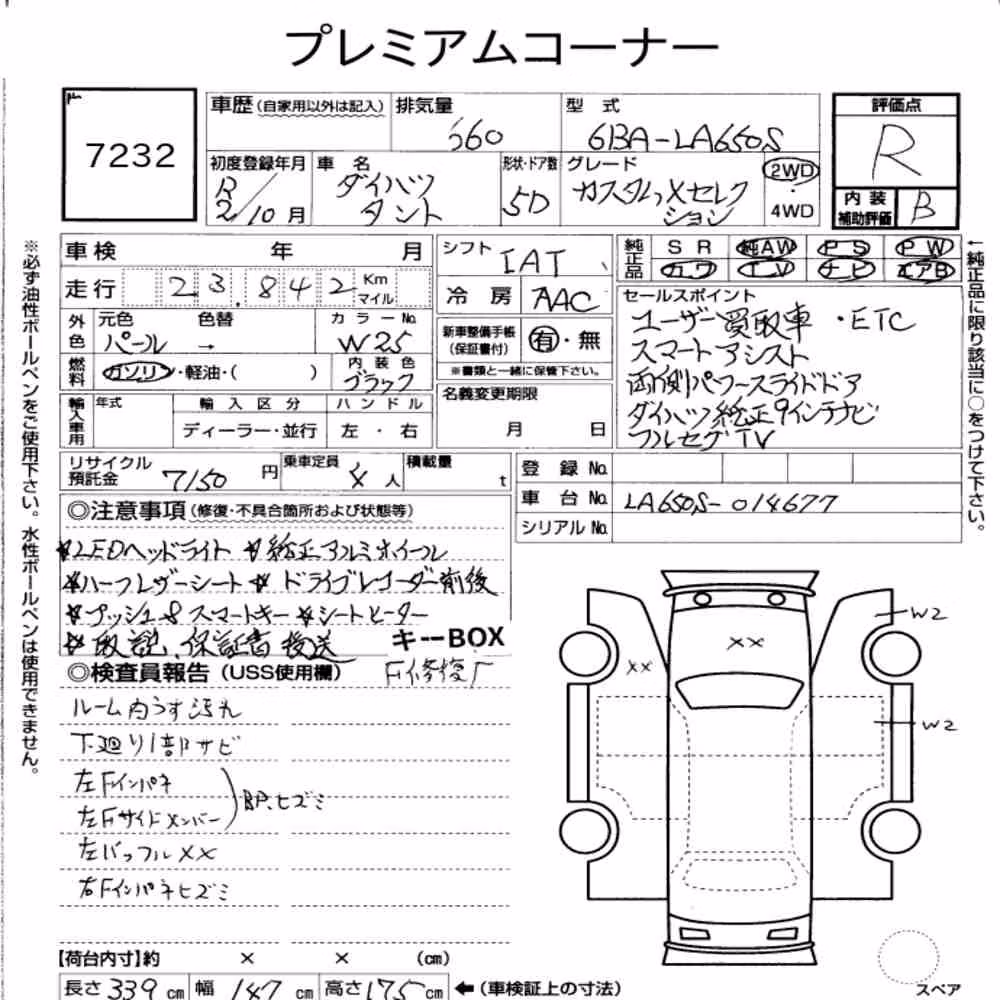 プレミアムコーナー
7232
車歴 (自家用以外は記入)
排気量
660
型 式
6BA-LA650S
評価点
R
初度登録年月
R2/10月
車 名
ダイハツ
タント
形状・ドア数
5D
グレード
カスタムXセレク
ション
2WD
・
4WD
内装
補助評価
B
車検 年 月
走行 23.842 Km
マイル
シフト IAT
冷 房 AAC
純正品 SR 純AW PS PW
カワ TV ナビ エアB
外色 元色 色替 カラーNo.
パール → W25
新車整備手帳
(保証書付)
有・無
※書類と一緒に保管下さい。
セールスポイント
ユーザー買取車 ・ETC
スマートアシスト
両側パワースライドドア
ダイハツ純正9インチナビ
フルセグTV
燃料 ガソリン・軽油・( )
内装色
ブラック
名義変更期限
月 日
輸入車用 年式 輸入区分 ハンドル
ディーラー・並行 左・右
リサイクル
預託金 7150 円
乗車定員 4 人
積載量 t
登録 No.
車台 No. LA650S-014677
シリアル No.
◎注意事項 (修復・不具合箇所および状態等)
☆LEDヘッドライト ☆純正アルミホイール
☆ハーフレザーシート ☆ドライブレコーダー前後
☆プッシュ&スマートキー ☆シートヒーター
☆取説、保証書後送
キーBOX
◎検査員報告 (USS使用欄)
F修復
ルーム内うす汚れ
下廻り1部サビ
左Fインパネ
左Fサイドメンバー
BP、ヒズミ
左バッフルXX
右Fインパネヒズミ
XX
XX
W2
W2
【荷台内寸】約 × × (cm)
長さ 339 cm 幅 147 cm 高さ 175 cm ←(車検証上の寸法)
スペア
※必ず油性ボールペンをご使用下さい。水性ボールペンは使用できません。
←純正品に限り該当に○をつけて下さい。